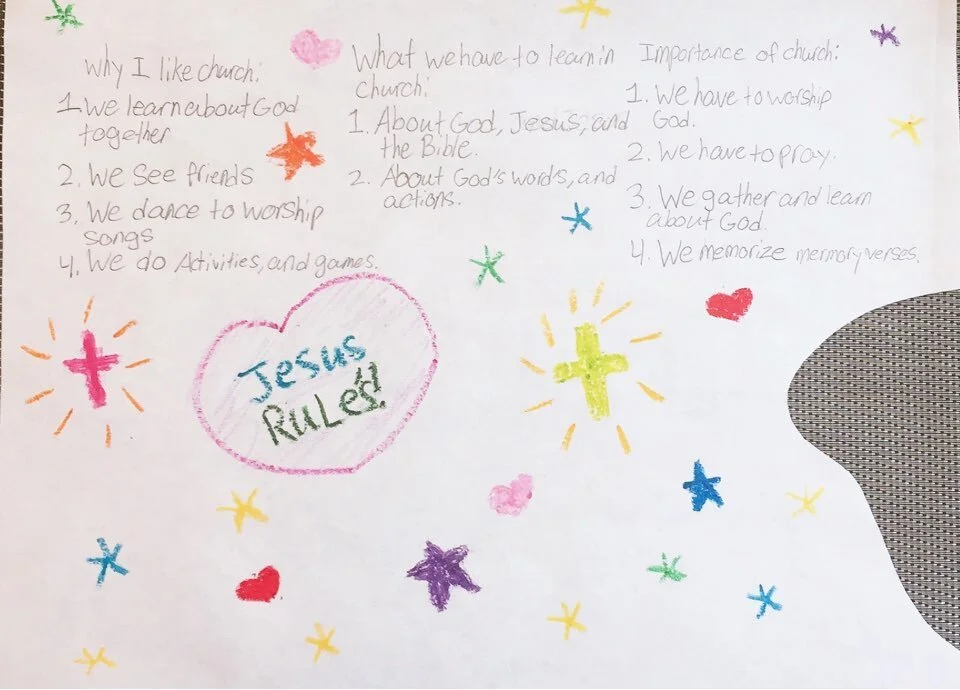 why I like church:
1. We learn about God
together
2. We see friends
3. We dance to worship
songs
4. We do Activities, and games.
What we have to learn in
church:
1. About God, Jesus, and
the Bible.
2. About God's words, and
actions.
Importance of church:
1. We have to worship
God.
2. We have to pray.
3. We gather and learn
about God.
4. We memorize mermory verses.
Jesus
RULes!!